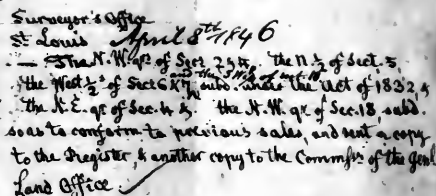 Surveyor's Office
St Louis April 8th 1846
— The N.W. qr of Sec. the N. ½ of Sect. 5,
the West ½ of Sec 6 & 7 subd. under the Act of 1832, &
the N.E. qr of Sec. the N.W. qr of Sec. 18, subd.
so as to conform to previous sales, and sent a copy
to the Register, & another copy to the Commssr of the Genl
Land Office